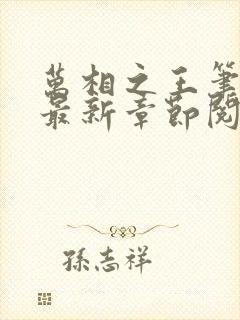 萬相之王筆
最新章節閱
孫志祥